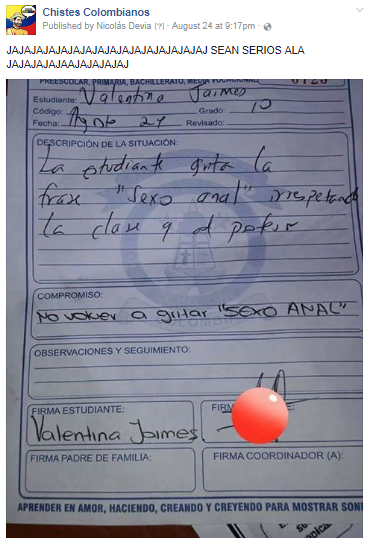 Chistes Colombianos
Published by Nicolás Devia [?] · August 24 at 9:17pm ·
JAJAJAJAJAJAJAJAJAJAJAJAJAJAJAJAJ SEAN SERIOS ALA
JAJAJAJAJAAJAJAJAJAJ
PREESCOLAR, PRIMARIA, BACHILLERATO, MEDIA VOCACIONAL
Estudiante: Valentina Jaimes
Código: Grado: 10
Fecha: Agosto 24 Revisado:
DESCRIPCIÓN DE LA SITUACIÓN:
La estudiante grita la
frase "Sexo anal" irrespetando
la clase y al profesor
COMPROMISO:
No volver a gritar "SEXO ANAL"
OBSERVACIONES Y SEGUIMIENTO:
FIRMA ESTUDIANTE:
Valentina Jaimes
FIRMA PADRE DE FAMILIA:
FIRMA COORDINADOR (A):
APRENDER EN AMOR, HACIENDO, CREANDO Y CREYENDO PARA MOSTRAR